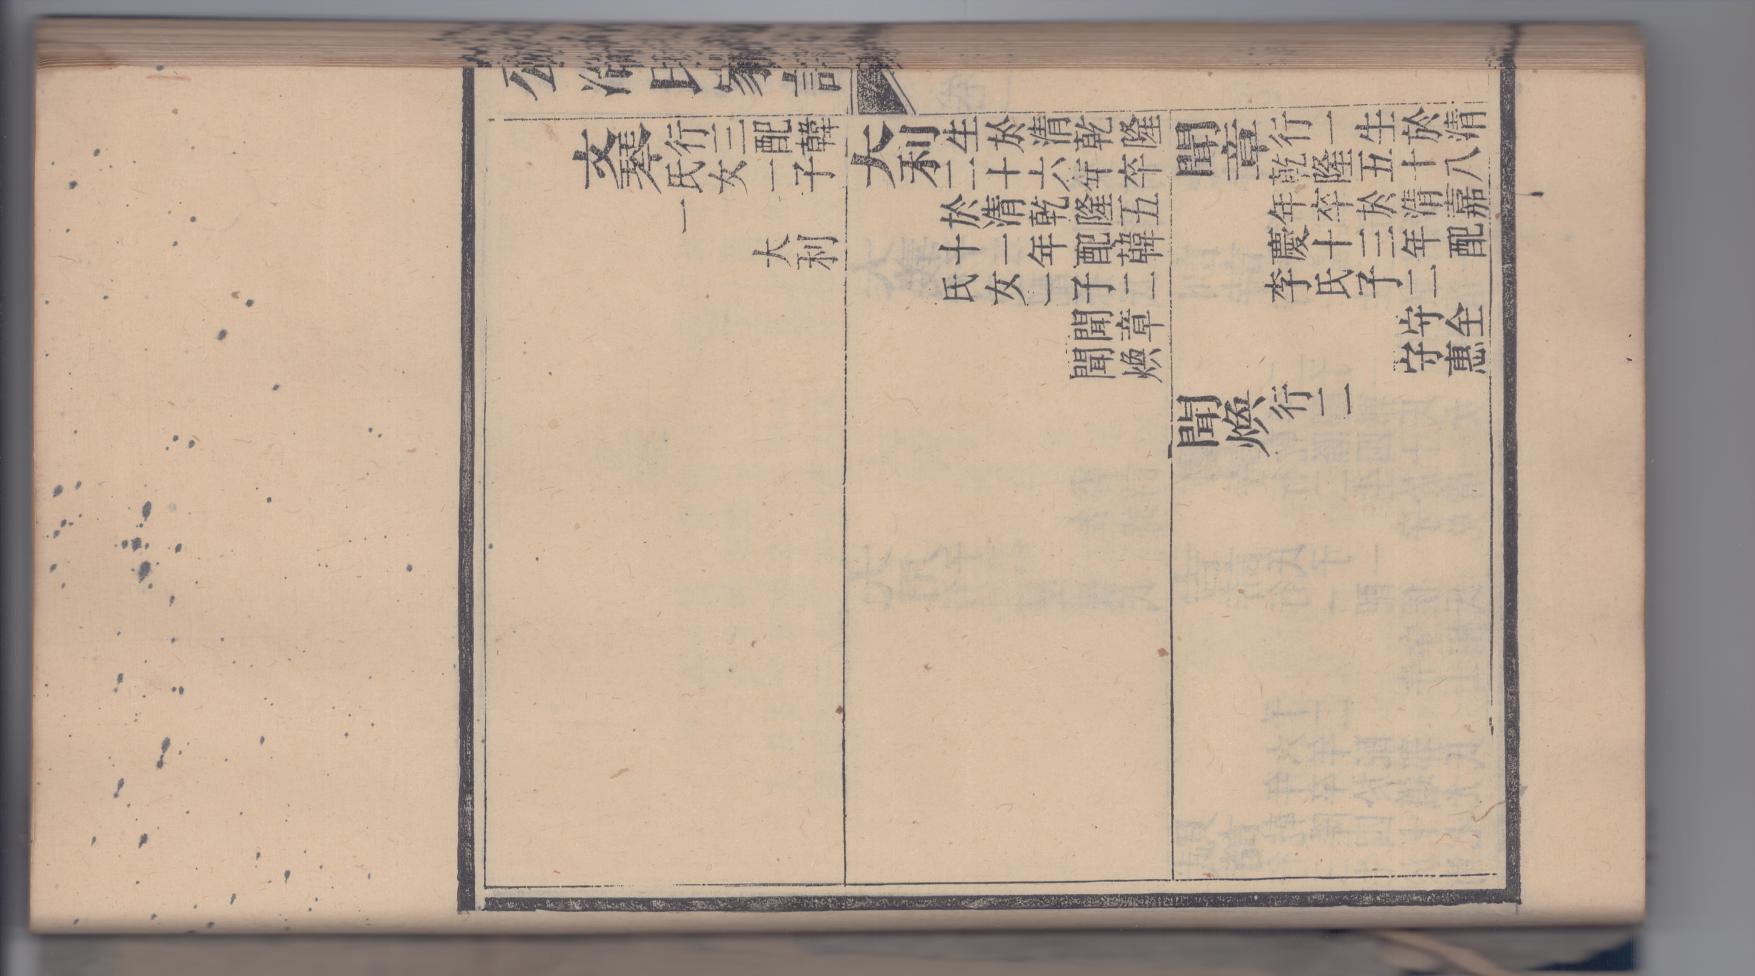 公冶氏家譜
文舉
行三配韓
氏女二子
一
大利
大利
生於清乾隆
二十六年卒
於清乾隆五
十一年配韓
氏女一子二
聞章
聞煥
聞章
行一生於清
乾隆五十八
年卒於清嘉
慶十三年配
李氏子二
守全
守惠
聞煥
行二